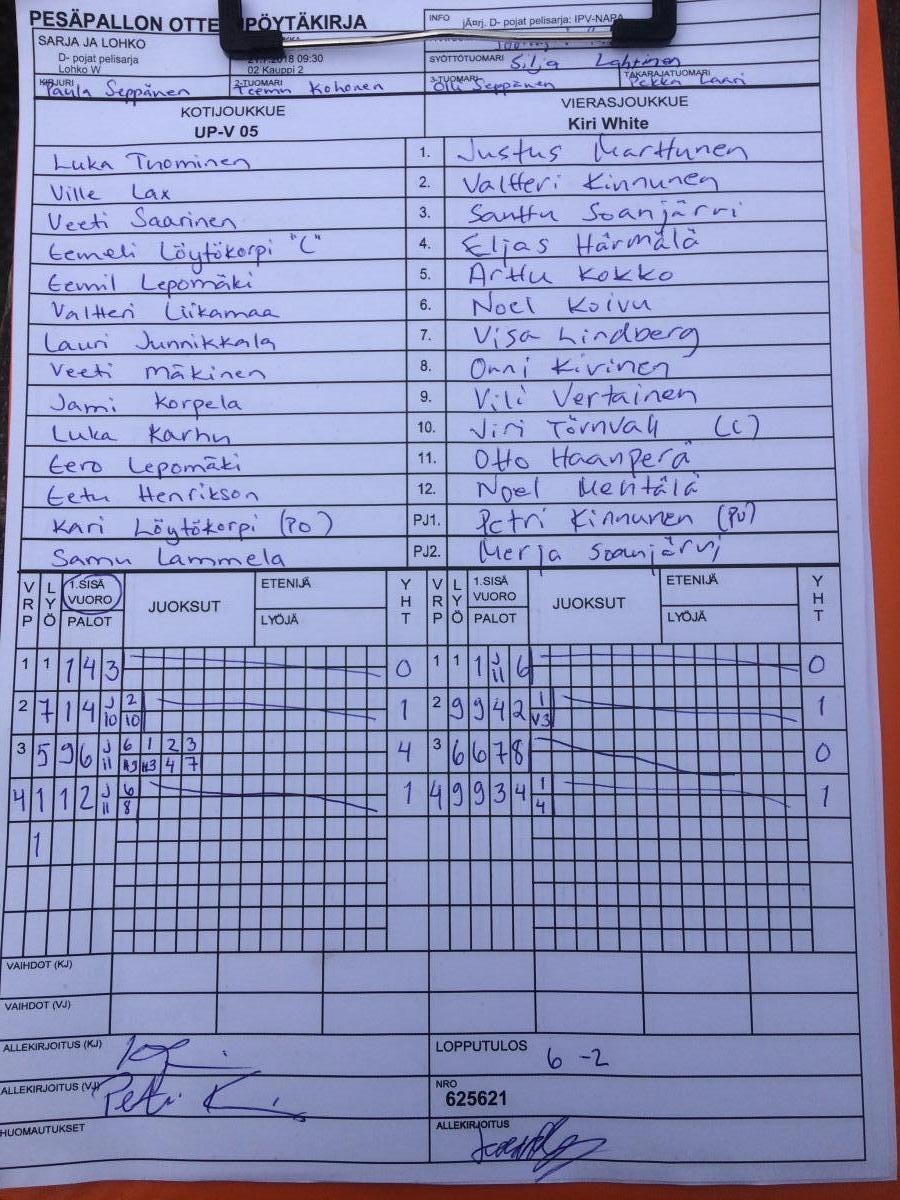 PESÄPALLON OTTELUPÖYTÄKIRJA
INFO jÃ¤rj. D- pojat pelisarja: IPV-NAPA
SARJA JA LOHKO
D- pojat pelisarja
Lohko W
27.7.2018 09:30
02 Kauppi 2
SYÖTTÖTUOMARI Silja Lahtinen
KIRJURI Paula Seppänen
2-TUOMARI Teemu Kohonen
3-TUOMARI Olli Seppänen
TAKARAJATUOMARI Pekka Lauri
KOTIJOUKKUE
UP-V 05
VIERASJOUKKUE
Kiri White
Luka Tuominen 1. Justus Marttunen
Ville Lax 2. Valtteri Kinnunen
Veeti Saarinen 3. Santtu Soanjärvi
Eemeli Löytökorpi "C" 4. Elias Härmälä
Eemil Lepomäki 5. Arttu Kokko
Valtteri Liikamaa 6. Noel Koivu
Lauri Junnikkala 7. Visa Lindberg
Veeti Mäkinen 8. Onni Kivinen
Jami Korpela 9. Vili Vertainen
Luka Karhu 10. Jiri Törnvall (C)
Eero Lepomäki 11. Otto Haanperä
Eetu Henrikson 12. Noel Mentälä
Kari Löytökorpi (PO) PJ1. Petri Kinnunen (PJ)
Samu Lammela PJ2. Merja Soanjärvi
VRP LYÖ 1.SISÄ VUORO PALOT JUOKSUT ETENIJÄ LYÖJÄ YHT VRP LYÖ 1.SISÄ VUORO PALOT JUOKSUT ETENIJÄ LYÖJÄ YHT
1 1 1 4 3 0 1 1 1 J 11 6 0
2 7 1 4 J 10 2 10 1 2 9 9 4 2 1 V3 1
3 5 9 6 J 11 6 1 2 3 H3 4 7 4 3 6 6 7 8 0
4 1 1 2 J 11 6 8 1 4 9 9 3 4 1 4 1
1
VAIHDOT (KJ)
VAIHDOT (VJ)
ALLEKIRJOITUS (KJ)
LOPPUTULOS 6 -2
ALLEKIRJOITUS (VJ) Petri K
NRO
625621
HUOMAUTUKSET
ALLEKIRJOITUS